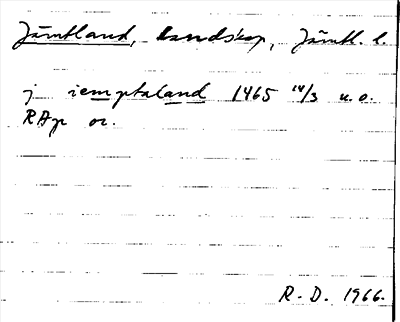 Jämtland, landskap, Jämtl. l.
j iemptaland 1465 14/3 u.o.
RAp or.
R. D. 1966.